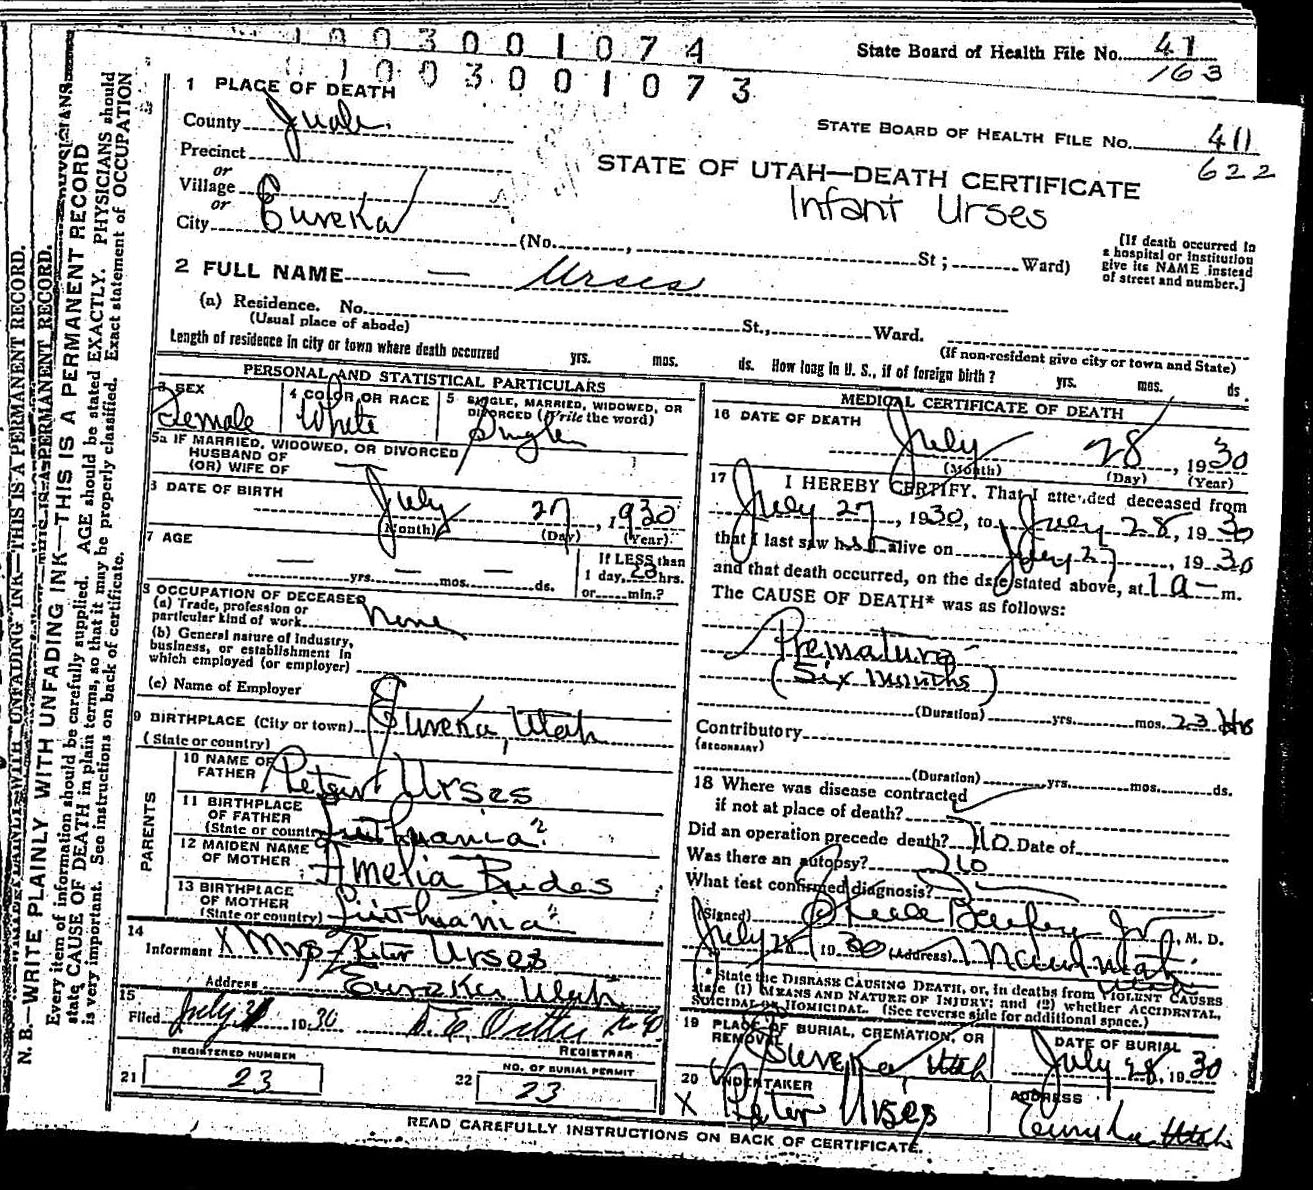 1003001074
State Board of Health File No. 41
163
1003001073
STATE BOARD OF HEALTH FILE No. 411
622
1 PLACE OF DEATH
County Juab
Precinct
or
Village
or
City Eureka
STATE OF UTAH—DEATH CERTIFICATE
Infant Urses
(No. , St ; Ward)
[If death occurred in
a hospital or institution
give its NAME instead
of street and number.]
2 FULL NAME — Urses
(a) Residence. No. St., Ward.
(Usual place of abode)
(If non-resident give city or town and State)
Length of residence in city or town where death occurred yrs. mos. ds. How long in U. S., if of foreign birth? yrs. mos. ds.
PERSONAL AND STATISTICAL PARTICULARS
3 SEX
Female
4 COLOR OR RACE
White
5 SINGLE, MARRIED, WIDOWED, OR
DIVORCED (Write the word)
Single
5a IF MARRIED, WIDOWED, OR DIVORCED
HUSBAND OF
(OR) WIFE OF —
6 DATE OF BIRTH
July 27, 1930
(Month) (Day) (Year)
7 AGE
— yrs. — mos. — ds.
If LESS than
1 day, 23 hrs.
or min.?
8 OCCUPATION OF DECEASED
(a) Trade, profession or
particular kind of work None
(b) General nature of Industry,
business, or establishment in
which employed (or employer)
(c) Name of Employer
9 BIRTHPLACE (City or town) Eureka, Utah
(State or country)
PARENTS
10 NAME OF
FATHER Peter Urses
11 BIRTHPLACE
OF FATHER
(State or country) Luithuania
12 MAIDEN NAME
OF MOTHER Amelia Brides
13 BIRTHPLACE
OF MOTHER
(State or country) Luithuania
14
Informant X Mrs Peter Urses
Address Eureka Utah
15
Filed July 1930
REGISTRAR
REGISTERED NUMBER
21 23
NO. OF BURIAL PERMIT
22 23
MEDICAL CERTIFICATE OF DEATH
16 DATE OF DEATH
July 28, 1930
(Month) (Day) (Year)
17 I HEREBY CERTIFY, That I attended deceased from
July 27, 1930, to July 28, 1930
that I last saw h alive on July 27, 1930
and that death occurred, on the date stated above, at 1 a m.
The CAUSE OF DEATH* was as follows:
Premature
(Six months)
(Duration) yrs. mos. 23 Hrs
Contributory
(SECONDARY)
(Duration) yrs. mos. ds.
18 Where was disease contracted
if not at place of death?
Did an operation precede death? No Date of
Was there an autopsy? No
What test confirmed diagnosis?
(Signed) Jr, M. D.
July 28, 1930 (Address) Utah
* State the DISEASE CAUSING DEATH, or, in deaths from VIOLENT CAUSES
state (1) MEANS AND NATURE OF INJURY; and (2) whether ACCIDENTAL,
SUICIDAL OR HOMICIDAL. (See reverse side for additional space.)
19 PLACE OF BURIAL, CREMATION, OR
REMOVAL
Eureka, Utah
DATE OF BURIAL
July 28, 1930
20 UNDERTAKER
X Peter Urses
ADDRESS
Eureka Utah
READ CAREFULLY INSTRUCTIONS ON BACK OF CERTIFICATE.
N. B.—WRITE PLAINLY WITH UNFADING INK—THIS IS A PERMANENT RECORD
Every item of information should be carefully supplied. AGE should be stated EXACTLY. PHYSICIANS should
state CAUSE OF DEATH in plain terms, so that it may be properly classified. Exact statement of OCCUPATION
is very important. See instructions on back of certificate.